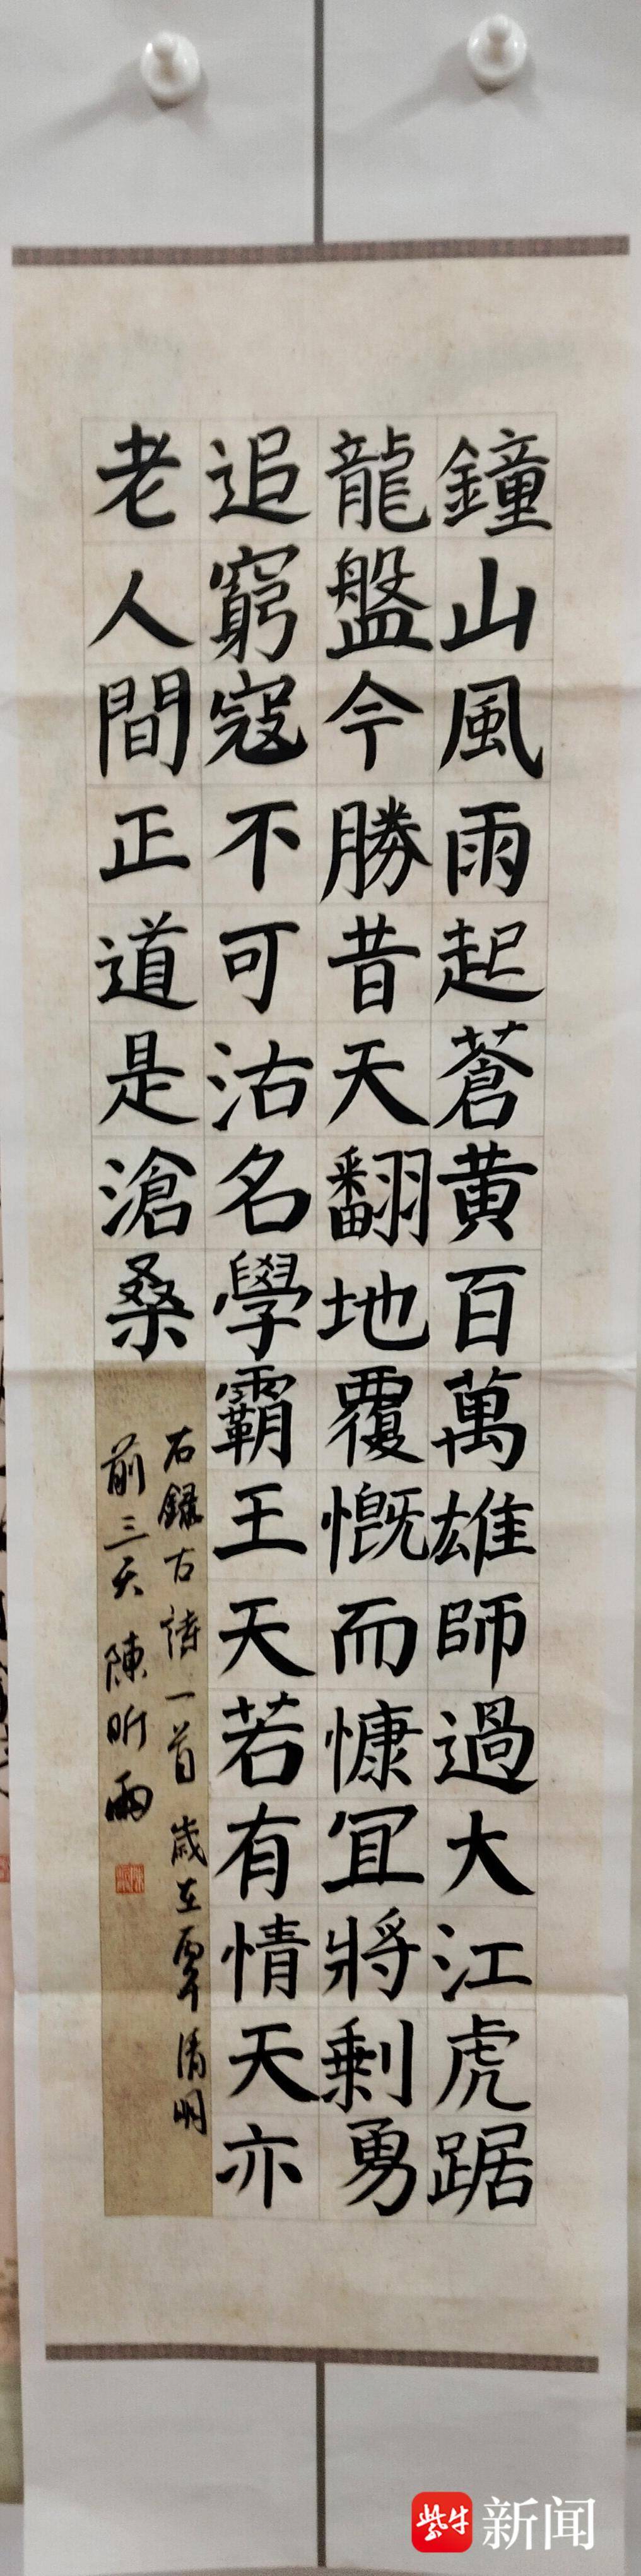 鐘山風雨起蒼黃百萬雄師過大江虎踞
龍盤今勝昔天翻地覆慨而慷宜將剩勇
追窮寇不可沽名學霸王天若有情天亦
老人間正道是滄桑
右録古詩一首 歲在 清明
前三天 陳昕雨
紫牛新闻